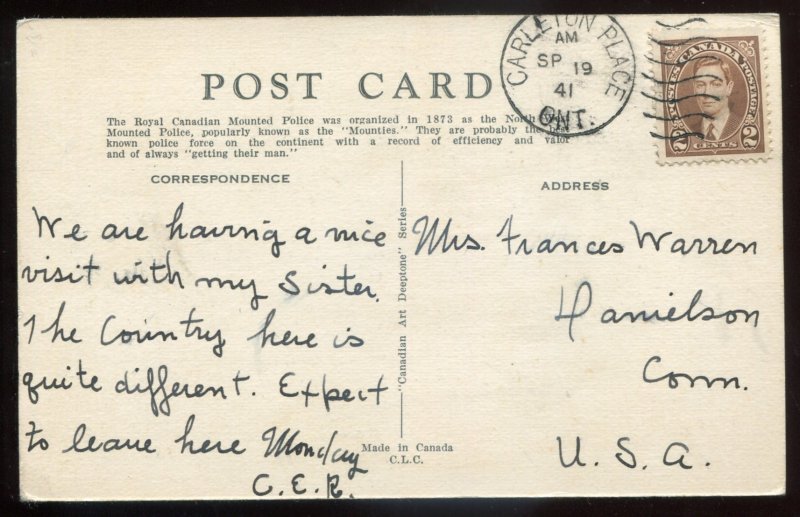 CARLETON PLACE
AM
SP 19
41
ONT.
POSTES CANADA POSTAGE
2 CENTS 2
POST CARD
The Royal Canadian Mounted Police was organized in 1873 as the North West
Mounted Police, popularly known as the "Mounties." They are probably the best
known police force on the continent with a record of efficiency and valor
and of always "getting their man."
CORRESPONDENCE
ADDRESS
We are having a nice
visit with my Sister.
The Country here is
quite different. Expect
to leave here Monday
C.E.R.
"Canadian Art Deeptone" Series
Made in Canada
C.L.C.
Mrs. Frances Warren
Danielson
Conn.
U.S.A.